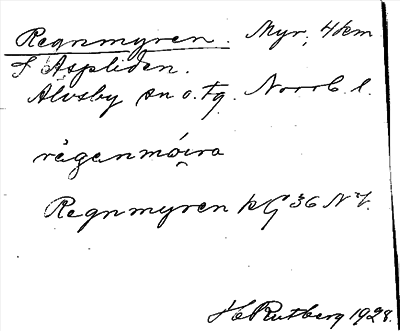 Regnmyren. Myr, 4 km
S Aspliden.
Älvsby sn o. tg. Norrb. l.
régenmóira
Regnmyren kG 36 NV.
H Rutberg 1928.